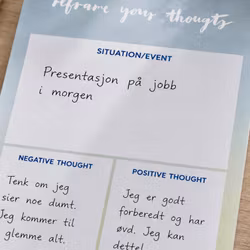 refrare your thougts
SITUATION/EVENT
Presentasjon på jobb
i morgen
NEGATIVE THOUGHT
Tenk om jeg
sier noe dumt.
Jeg kommer til
glemme alt.
POSITIVE THOUGHT
Jeg er godt
forberedt og har
øvd. Jeg kan
dette!